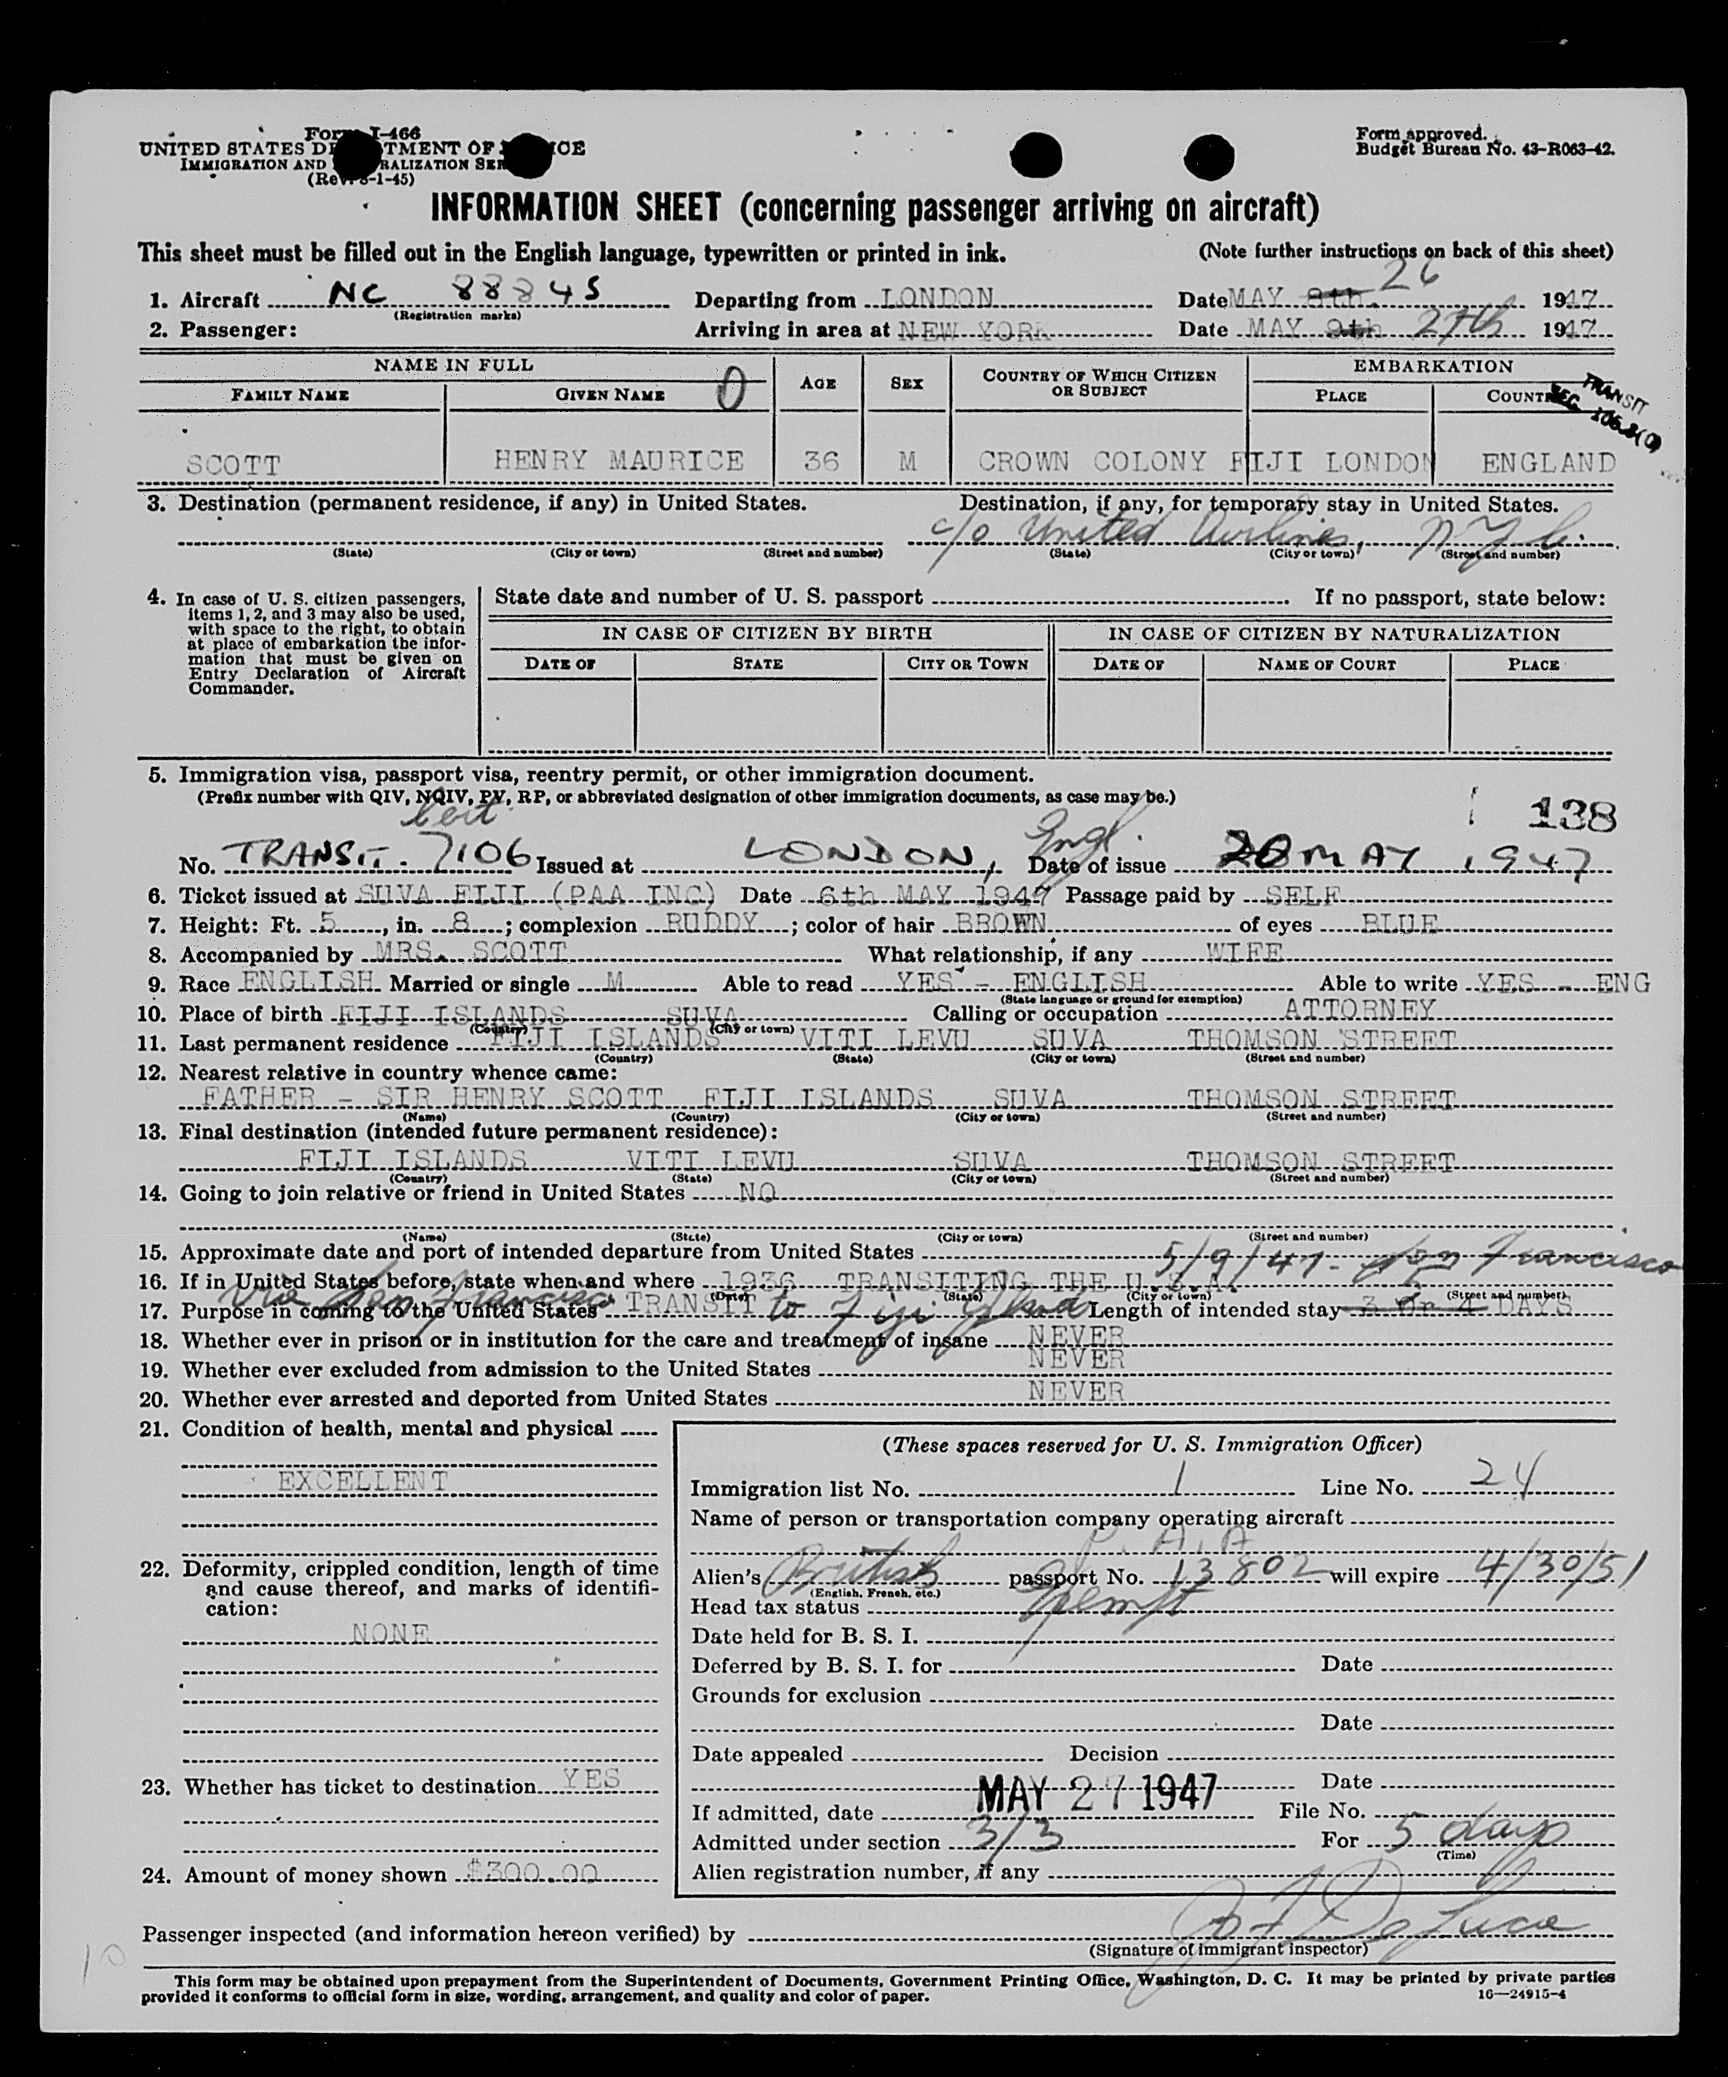 Form I-466
UNITED STATES DEPARTMENT OF JUSTICE
IMMIGRATION AND NATURALIZATION SERVICE
(Rev. 3-1-45)
Form approved.
Budget Bureau No. 43-R063-42.
INFORMATION SHEET (concerning passenger arriving on aircraft)
This sheet must be filled out in the English language, typewritten or printed in ink. (Note further instructions on back of this sheet)
1. Aircraft NC 88845 Departing from LONDON Date MAY 8th. 26 1947
(Registration marks)
2. Passenger: Arriving in area at NEW YORK Date MAY 9th 27th 1947
NAME IN FULL AGE SEX COUNTRY OF WHICH CITIZEN OR SUBJECT EMBARKATION
FAMILY NAME GIVEN NAME 0 PLACE COUNTRY
TRANSIT
SCOTT HENRY MAURICE 36 M CROWN COLONY FIJI LONDON ENGLAND
3. Destination (permanent residence, if any) in United States. Destination, if any, for temporary stay in United States.
c/o United Airlines, N Y C.
(State) (City or town) (Street and number) (State) (City or town) (Street and number)
4. In case of U. S. citizen passengers, items 1, 2, and 3 may also be used, with space to the right, to obtain at place of embarkation the information that must be given on Entry Declaration of Aircraft Commander.
State date and number of U. S. passport If no passport, state below:
IN CASE OF CITIZEN BY BIRTH IN CASE OF CITIZEN BY NATURALIZATION
DATE OF STATE CITY OR TOWN DATE OF NAME OF COURT PLACE
5. Immigration visa, passport visa, reentry permit, or other immigration document.
(Prefix number with QIV, NQIV, PV, RP, or abbreviated designation of other immigration documents, as case may be.)
138
No. TRANSIT Cert. 7106 Issued at LONDON, Engl. Date of issue 20 MAY 1947
6. Ticket issued at SUVA FIJI (PAA INC) Date 6th MAY 1947 Passage paid by SELF
7. Height: Ft. 5, in. 8; complexion RUDDY; color of hair BROWN of eyes BLUE
8. Accompanied by MRS. SCOTT What relationship, if any WIFE
9. Race ENGLISH Married or single M Able to read YES - ENGLISH Able to write YES - ENG
(State language or ground for exemption)
10. Place of birth FIJI ISLANDS SUVA Calling or occupation ATTORNEY
(Country) (City or town)
11. Last permanent residence FIJI ISLANDS VITI LEVU SUVA THOMSON STREET
(Country) (State) (City or town) (Street and number)
12. Nearest relative in country whence came:
FATHER - SIR HENRY SCOTT FIJI ISLANDS SUVA THOMSON STREET
(Name) (Country) (City or town) (Street and number)
13. Final destination (intended future permanent residence):
FIJI ISLANDS VITI LEVU SUVA THOMSON STREET
(Country) (State) (City or town) (Street and number)
14. Going to join relative or friend in United States NO
(Name) (State) (City or town) (Street and number)
15. Approximate date and port of intended departure from United States 5/9/47 - San Francisco
16. If in United States before, state when and where 1936 TRANSITING THE U.S.A.
(Date) (State) (City or town) (Street and number)
via San Francisco
17. Purpose in coming to the United States TRANSIT to Fiji Island Length of intended stay 3 or 4 DAYS
18. Whether ever in prison or in institution for the care and treatment of insane NEVER
19. Whether ever excluded from admission to the United States NEVER
20. Whether ever arrested and deported from United States NEVER
21. Condition of health, mental and physical
EXCELLENT
22. Deformity, crippled condition, length of time and cause thereof, and marks of identification:
NONE
23. Whether has ticket to destination YES
24. Amount of money shown $300.00
(These spaces reserved for U. S. Immigration Officer)
Immigration list No. 1 Line No. 24
Name of person or transportation company operating aircraft
P. A. A
Alien's British passport No. 13802 will expire 4/30/51
(English, French, etc.)
Head tax status Exempt
Date held for B. S. I.
Deferred by B. S. I. for Date
Grounds for exclusion
Date
Date appealed Decision
Date
If admitted, date MAY 27 1947 File No.
Admitted under section 3/3 For 5 days
(Time)
Alien registration number, if any
Passenger inspected (and information hereon verified) by
(Signature of immigrant inspector)
10
This form may be obtained upon prepayment from the Superintendent of Documents, Government Printing Office, Washington, D. C. It may be printed by private parties
provided it conforms to official form in size, wording, arrangement, and quality and color of paper. 16—24915-4